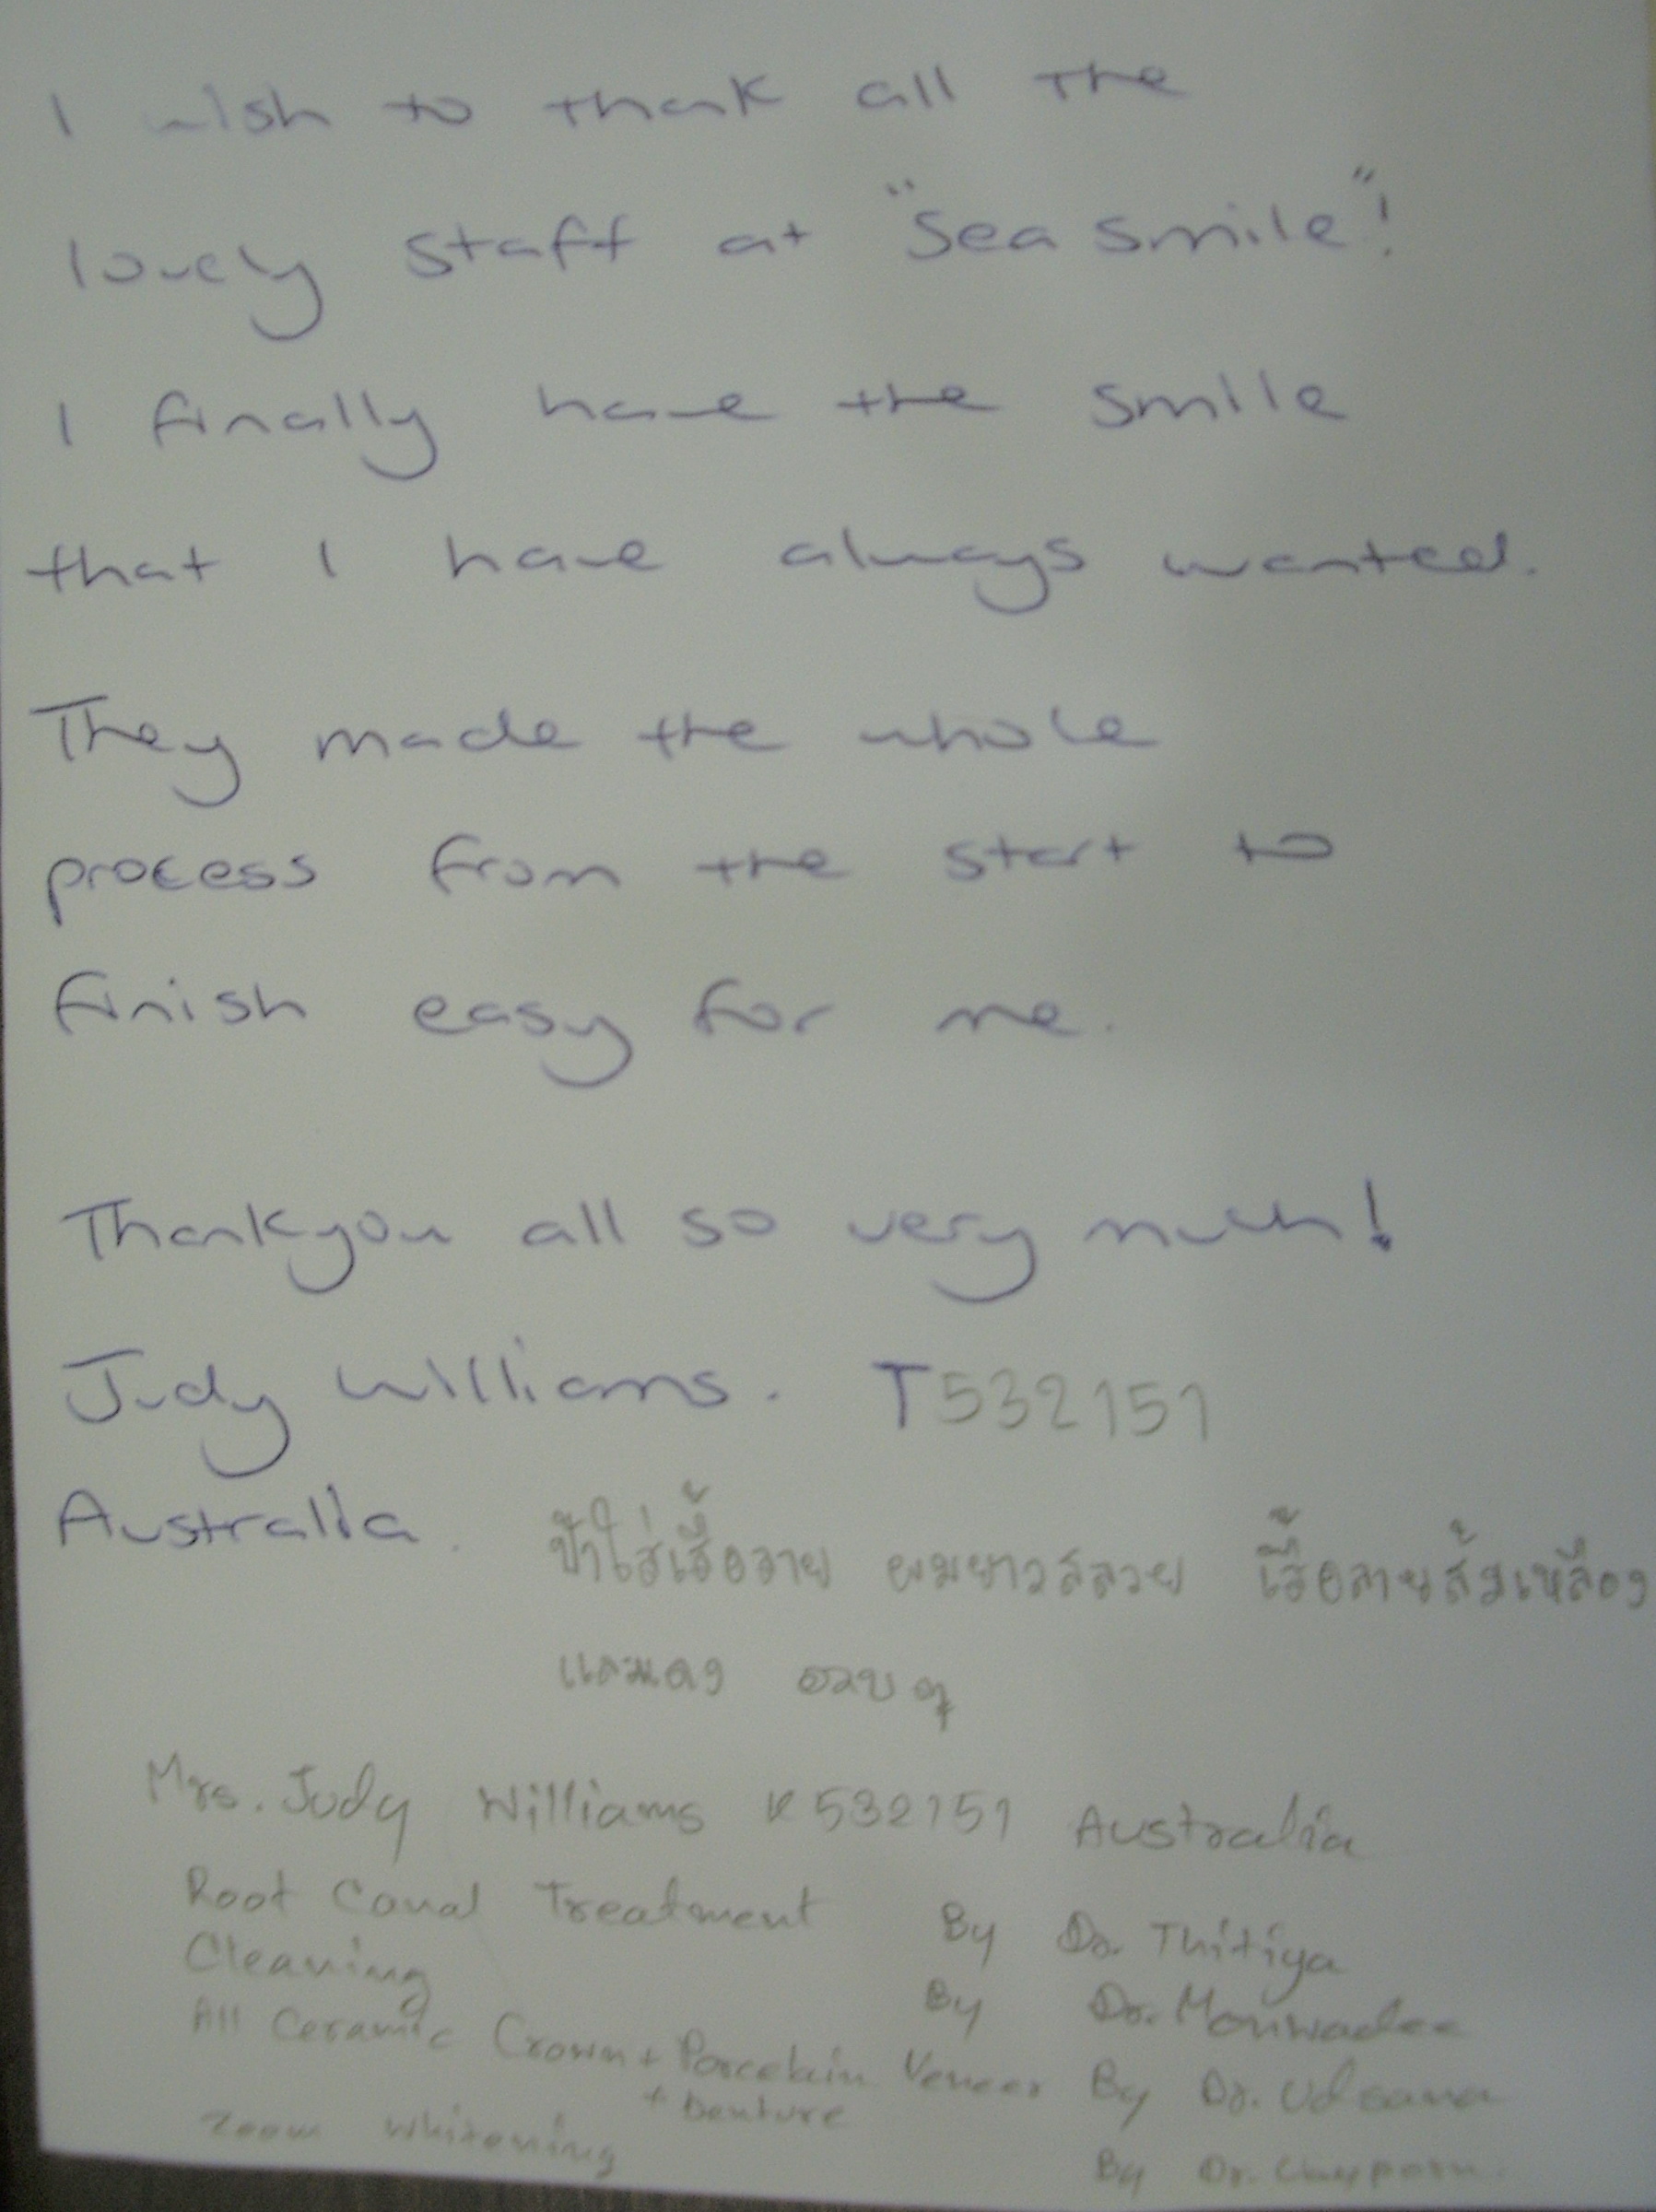 I wish to thank all the
lovely staff at "Sea smile"!
I finally have the smile
that I have always wanted.
They made the whole
process from the start to
finish easy for me.
Thankyou all so very much!
Judy Williams. T532151
Australia.
ป้าใส่เสื้อลาย ผมยาวสลวย เสื้อลายส้มเหลือง
และแดง
Mrs. Judy Williams K532151 Australia
Root Canal Treatment By Dr. Thitiya
Cleaning By Dr. Monwadee
All Ceramic Crown + Porcelain Veneer By Dr. Udsana
+ Denture
Zoom Whitening By Dr.